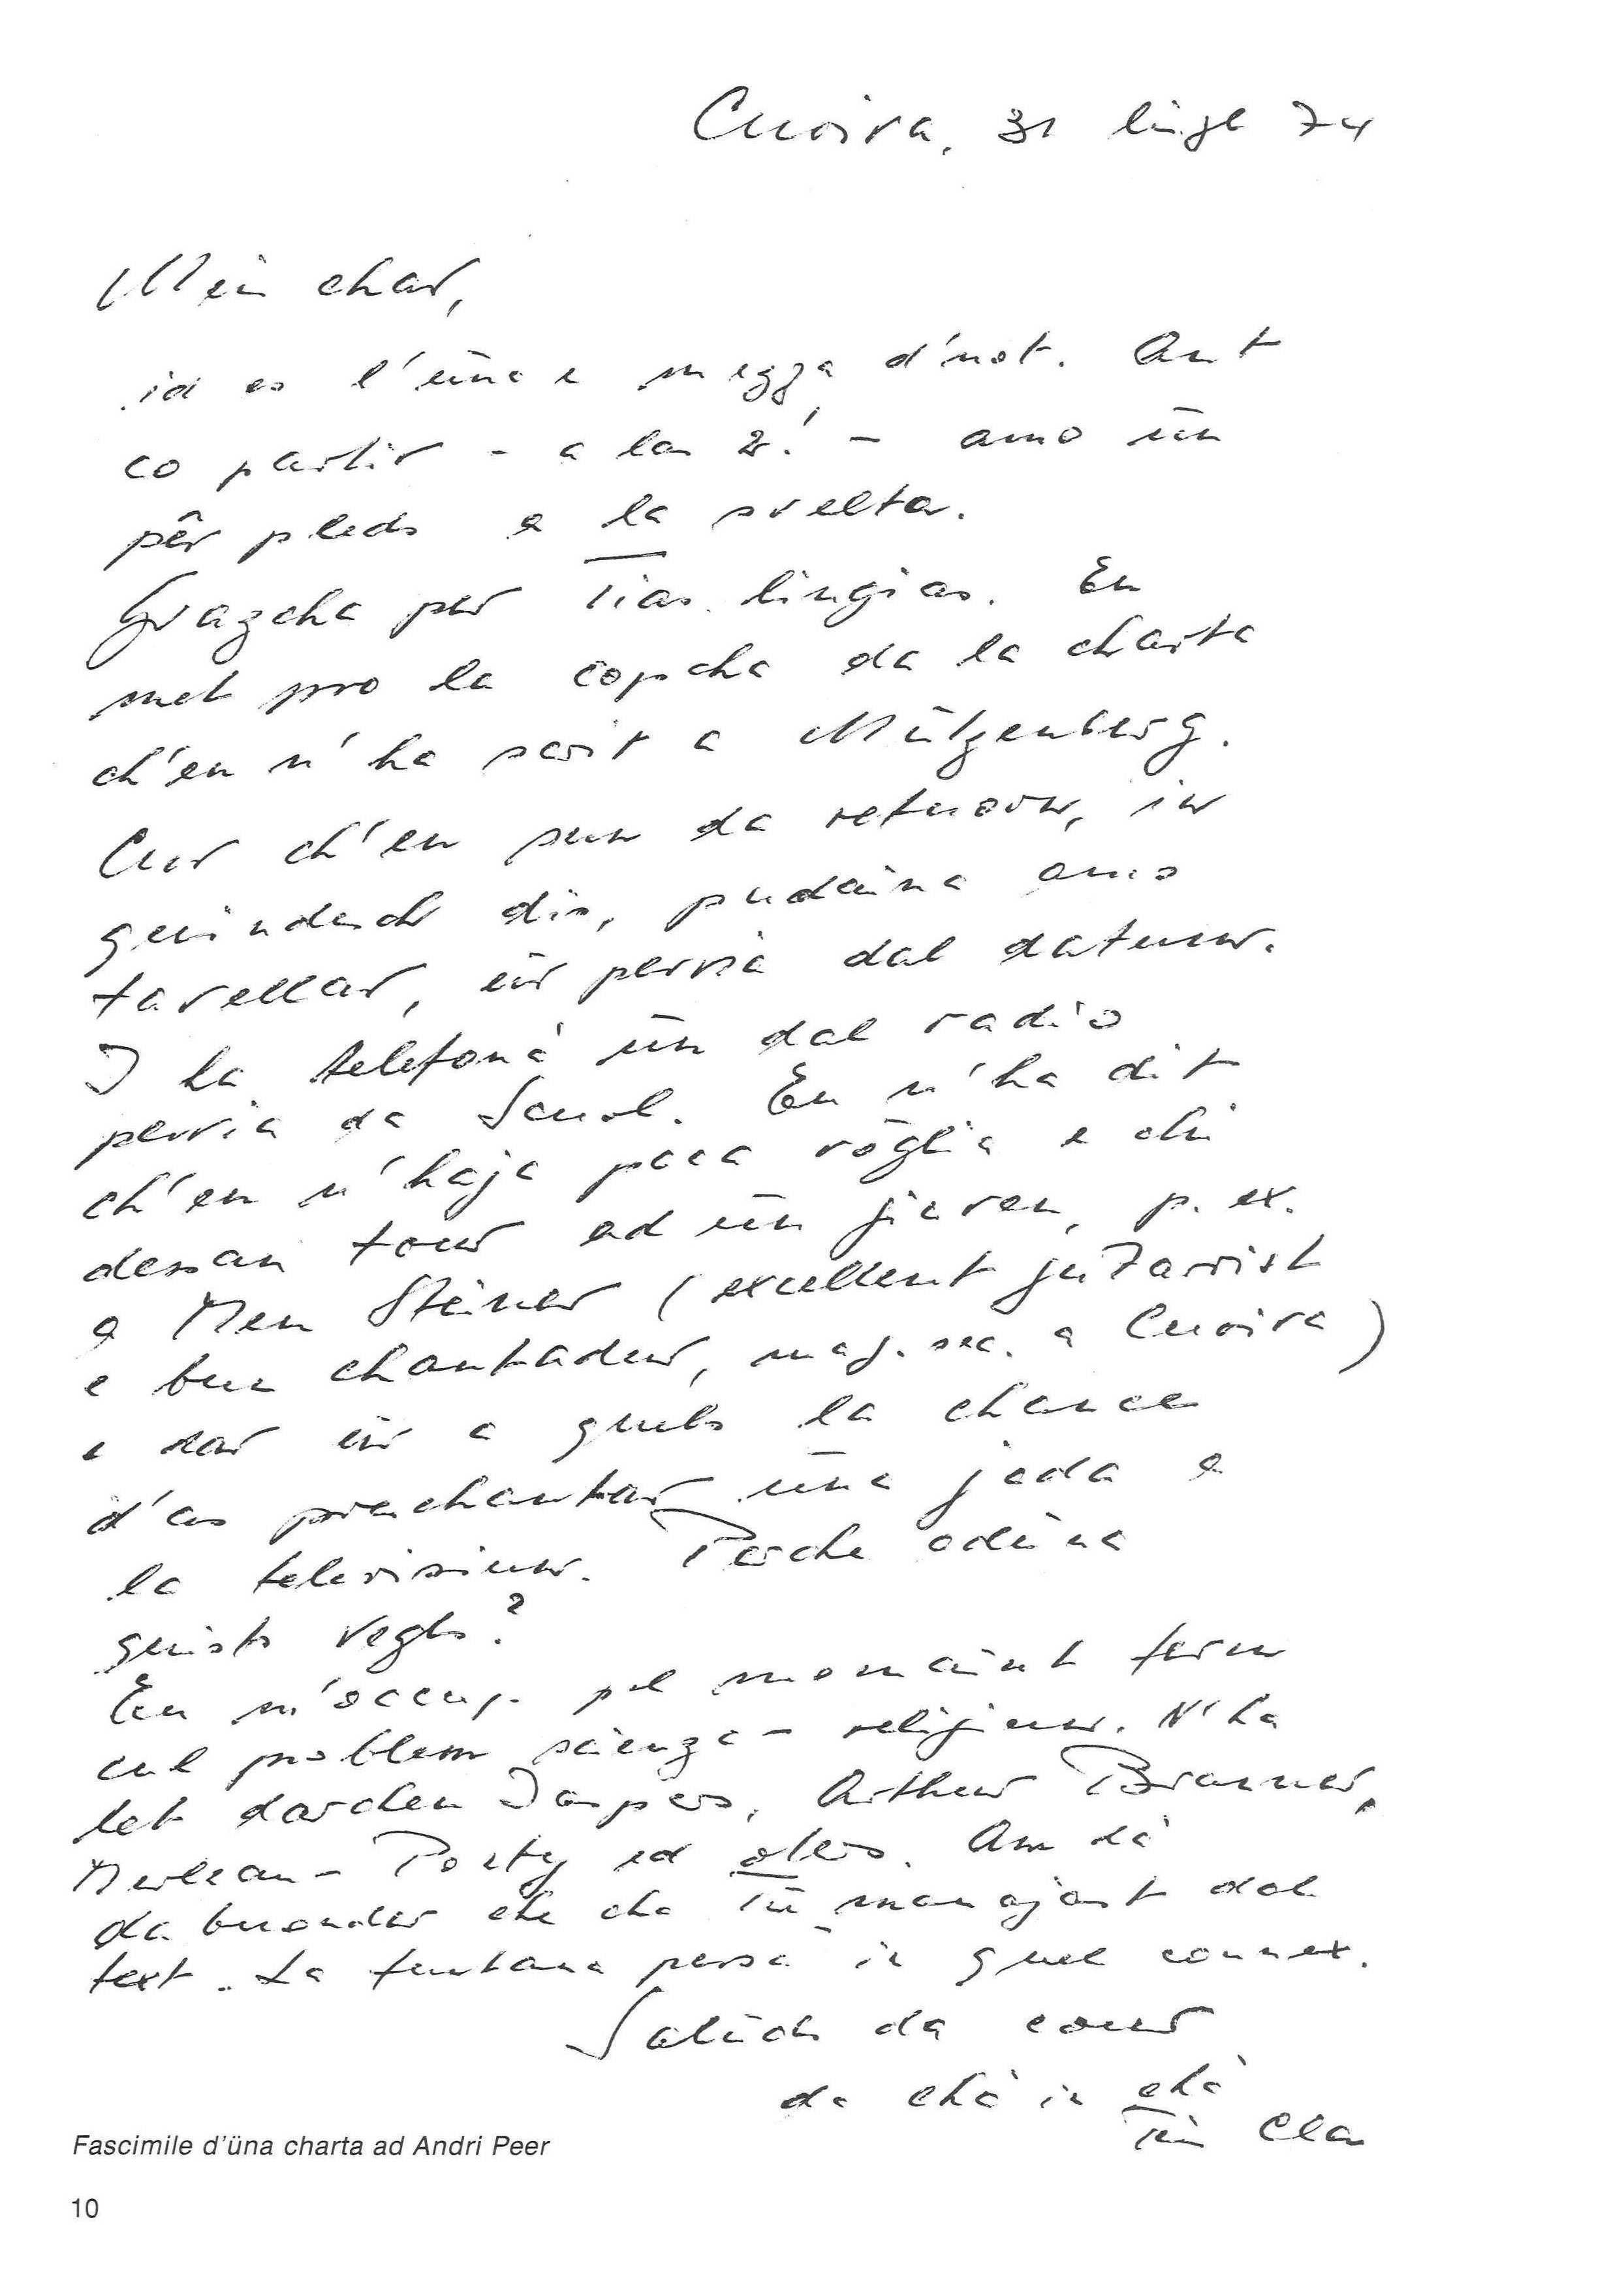 Cuoira, 31 lügl 74
Meis char,
id es l'üna e mezza d'not. Ant
co partir - a las 2! - amo ün
pêr pleds a la svelta.
Grazcha per Tias lingias. Eu
met pro la copcha da la charta
ch'eu n'ha scrit a Mützenberg.
Cur ch'eu sun da retuorn, in
quindesch dis, pudaina amo
tavellar, eir pervia dal datum.
I ha telefonà ün dal radio
pervia da Scuol. Eu n'ha dit
ch'eu n'haja paca vöglia e chi
dessan tour ad ün giuven, p. ex.
a Men Steiner (excellent guitarrist
e bun chantadur, mag. sec. a Cuoira)
e dar eir a quels la chance
d'as preschantar üna jada a
la televisiun. Perche adüna
quists vegls?
Eu m'occup pel momaint ferm
cul problem scienza - religiun. N'ha
let darcheu Jaspers, Arthur Brunner,
Merleau-Ponty ed oters. Am dà
da buonder che cha Tü manajast dal
text. La funtana persa in quel connex.
Salüds da cour
da chà in chà
Teis Cla
Fascimile d'üna charta ad Andri Peer
10